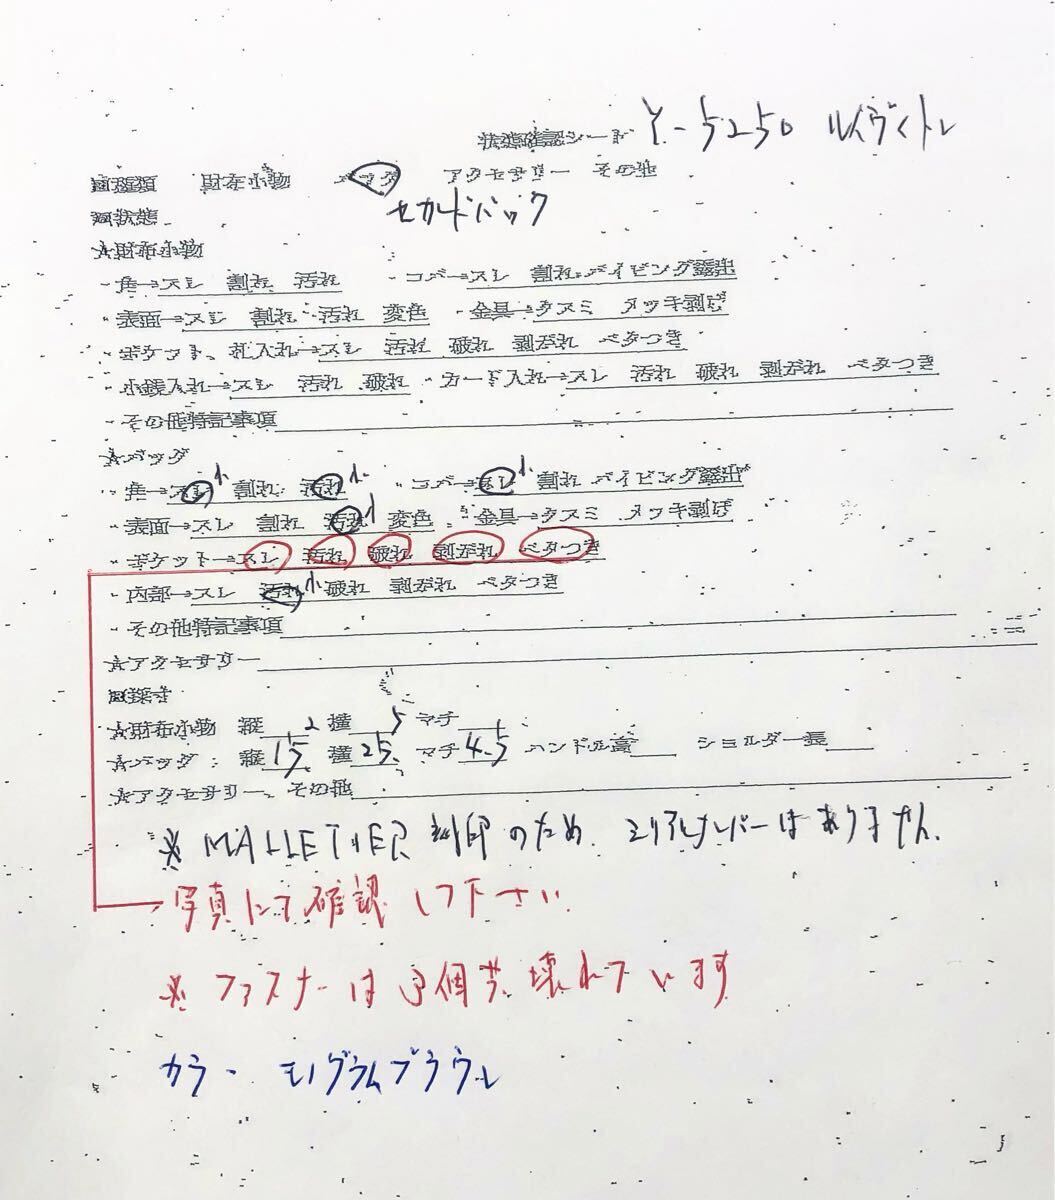 状態確認シート Y-5250 ルイヴィトン
回種類 財布小物 バッグ アクセサリー その他
セカンドバック
回状態
☆財布小物
・角→スレ 割れ 汚れ ・コバ→スレ 割れ パイピング露出
・表面→スレ 割れ 汚れ 変色 ・金具→クスミ メッキ剥げ
・ポケット、札入れ→スレ 汚れ 破れ 剥がれ ベタつき
・小銭入れ→スレ 汚れ 破れ ・カード入れ→スレ 汚れ 破れ 剥がれ ベタつき
・その他特記事項
☆バッグ
・角→スレ小 割れ 汚れ小 ・コバ→スレ小 割れ パイピング露出
・表面→スレ 割れ 汚れ小 変色 ・金具→クスミ メッキ剥げ
・ポケット→スレ 汚れ 破れ 剥がれ ベタつき
・内部→スレ 汚れ小 破れ 剥がれ ベタつき
・その他特記事項
☆アクセサリー
回採寸
☆財布小物 縦 横 マチ
☆バッグ: 縦 15 横 25. マチ 4.5 ハンドル高 ショルダー長
☆アクセサリー、その他
※ MALLETIER 刻印のため シリアルナンバーはありません.
写真にて確認して下さい.
※ ファスナーは3個共 壊れています
カラー モノグラムブラウン